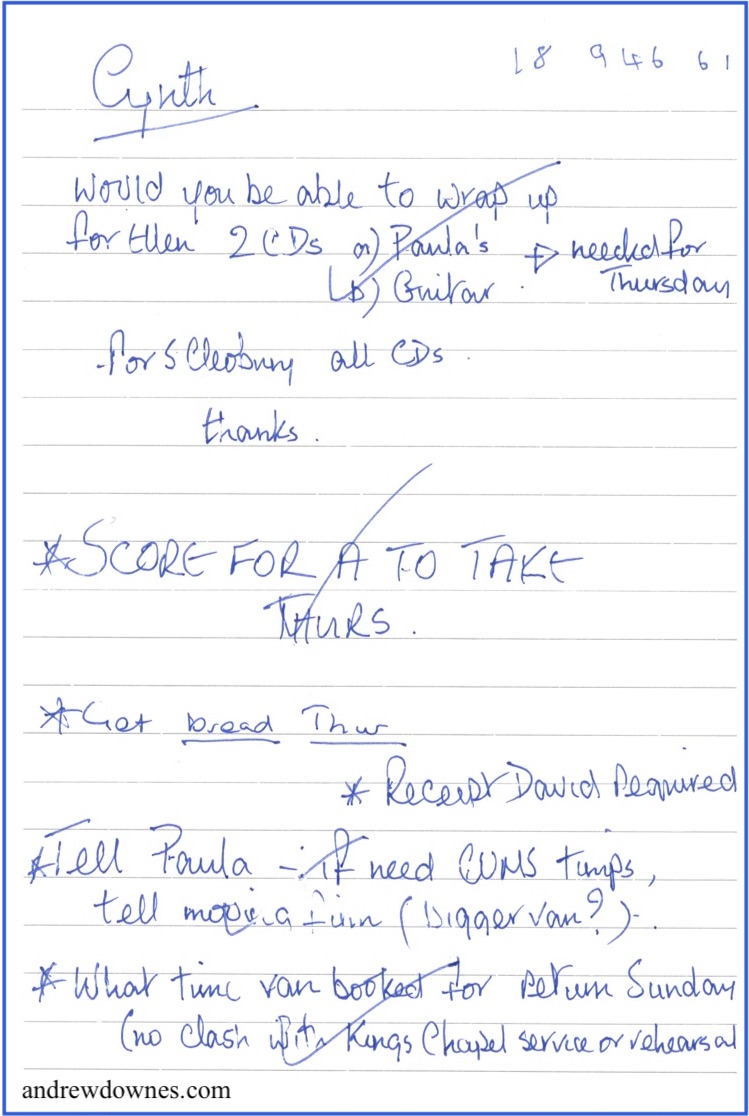 18 946 61
Cynth
Would you be able to wrap up
for Ellen 2 CDs a) Paula's → needed for
b) Guitar. Thursday
- for S Cleobury all CDs.
thanks.
* SCORE FOR A TO TAKE
THURS.
* Get bread Thur
* Receipt David Required
* Tell Paula - if need CUMS timps,
tell moving firm (Bigger van?).
* What time van booked for return Sunday
(no clash with Kings Chapel service or rehearsal
andrewdownes.com